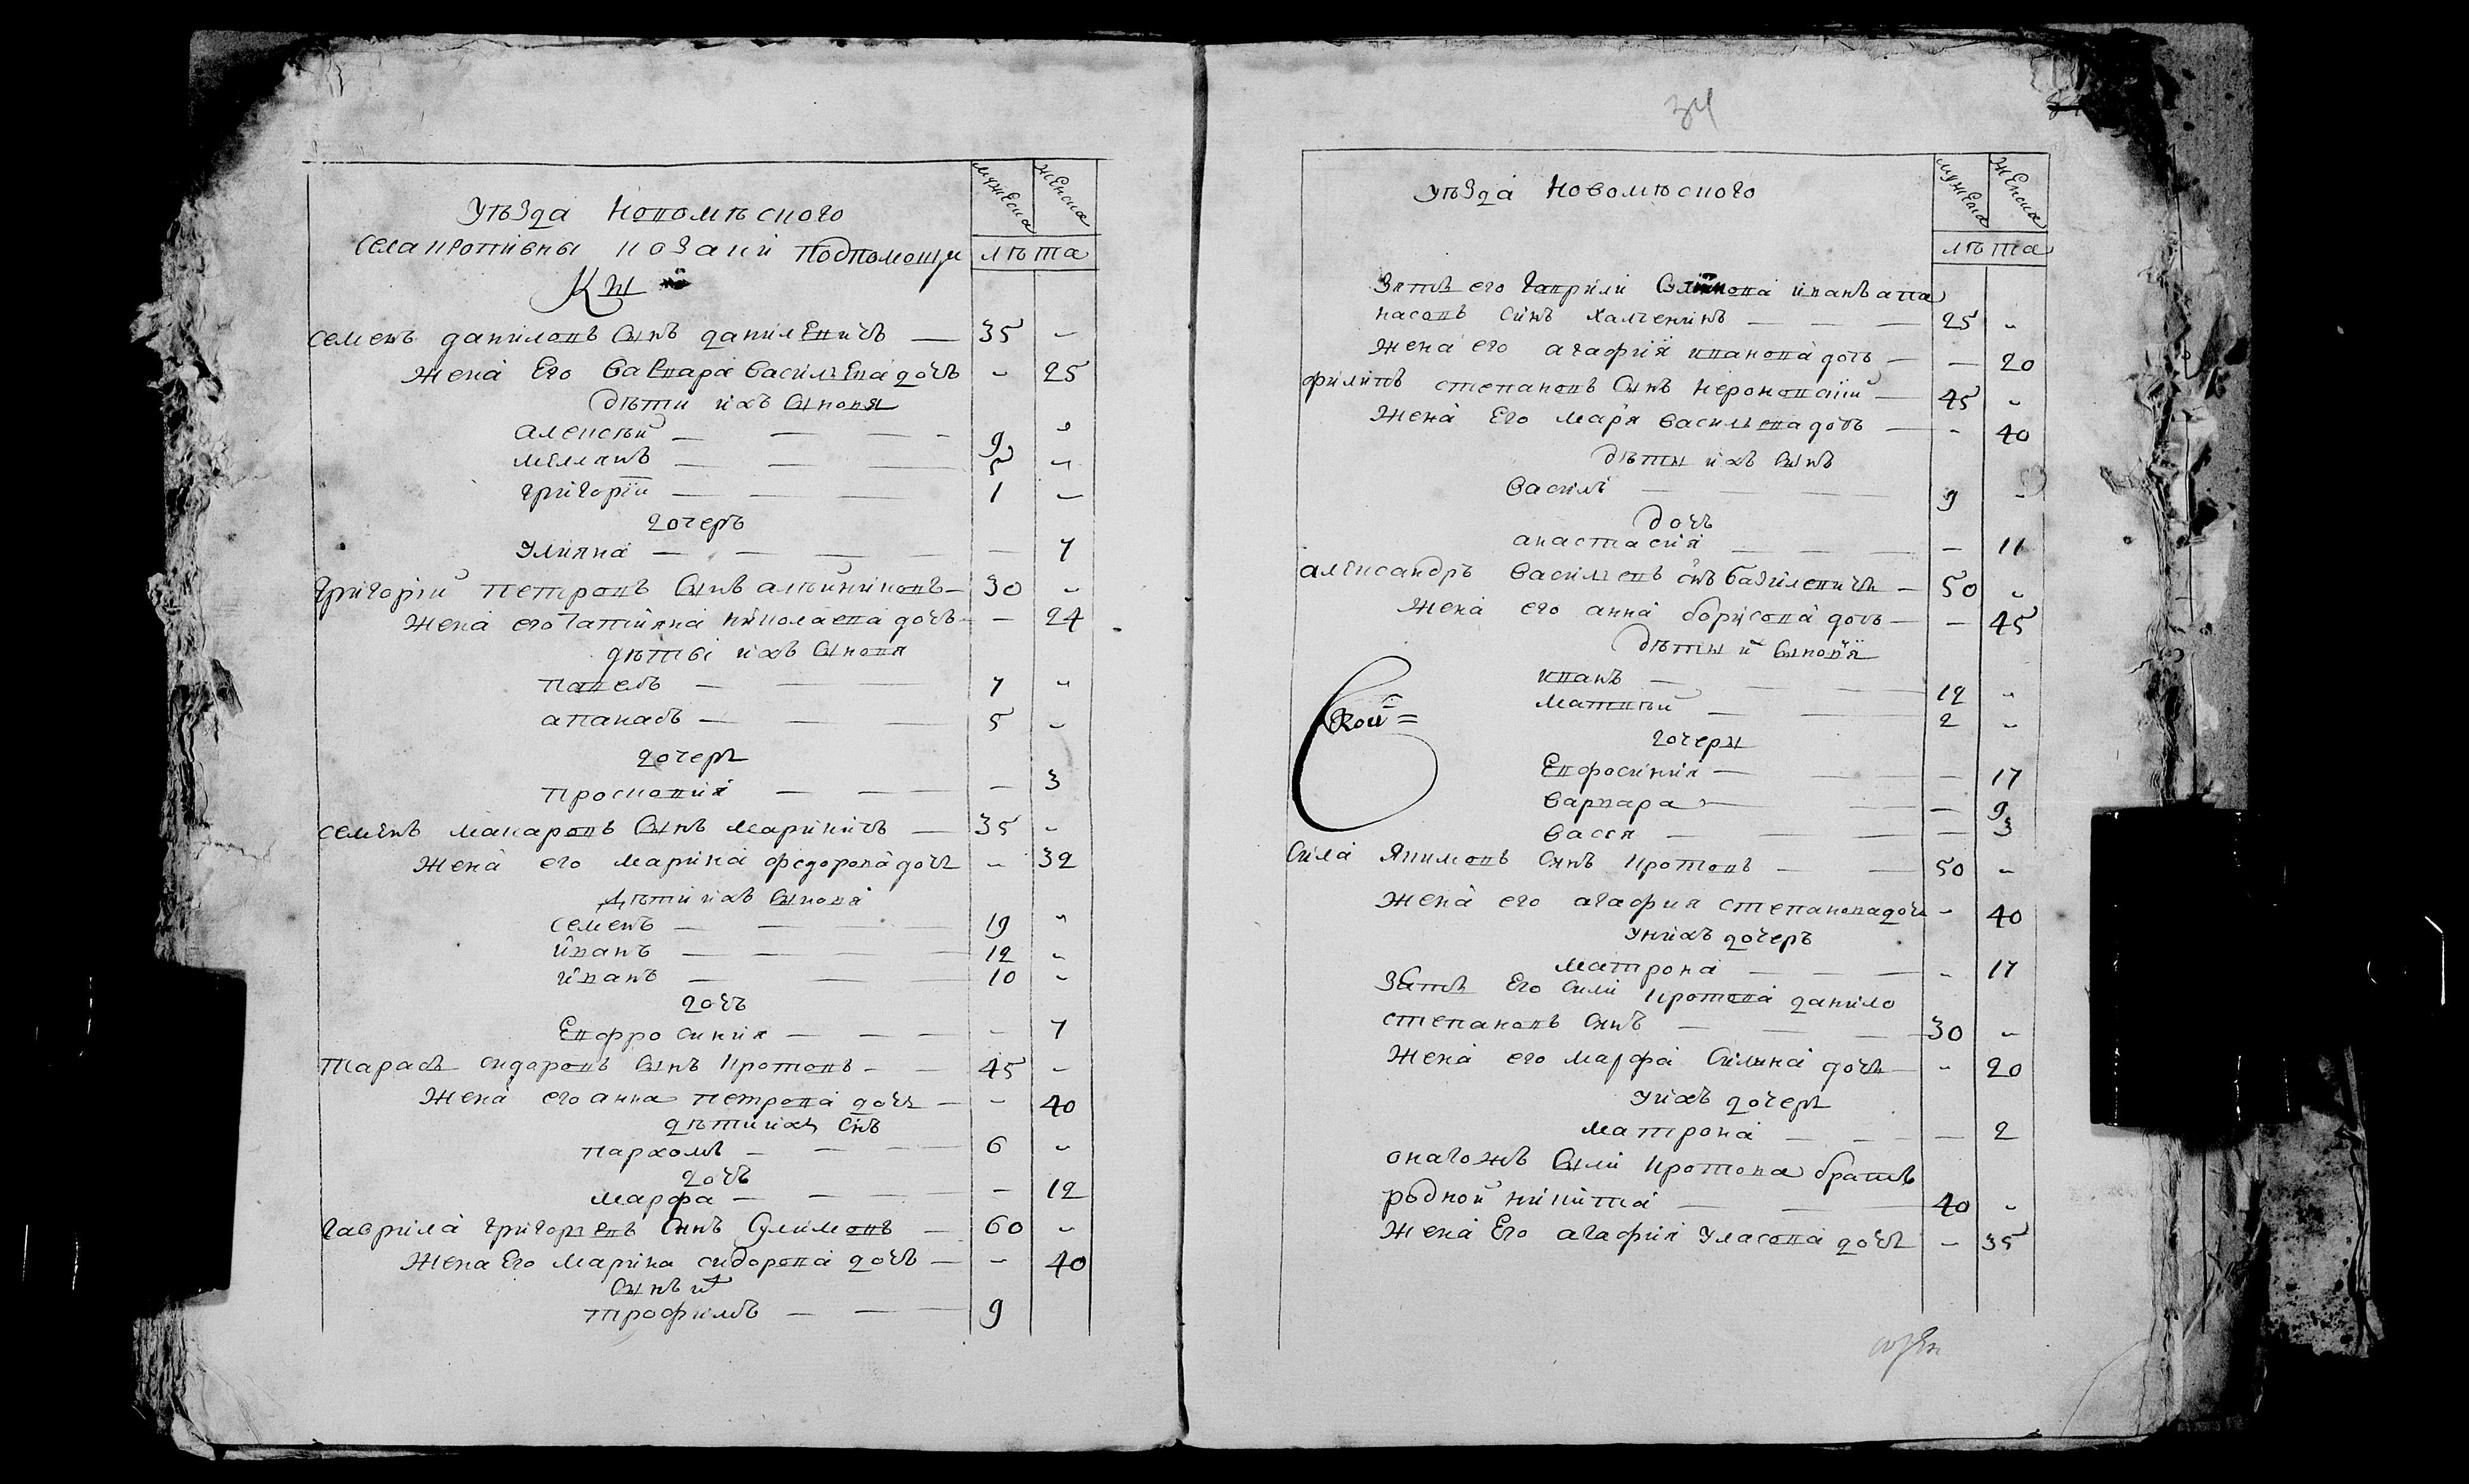 мужеска
женска
Уѣзда Новомѣского
села кротивны козаки подпомощи
ки
лѣта
семенъ даниловъ сынъ данилевичъ — 35 —
жена его варвара васильева дочъ — 25
дѣти ихъ сыновя
алексѣй — 9 —
мелянъ — 5 —
григорій — 1 —
дочеръ
улияна — 7
григорій петровъ сынъ алѣйниковъ — 30 —
жена его татияна николаева дочъ — 24
дѣтві ихъ сыновя
павелъ — 7 —
апанасъ — 5 —
дочерь
просковия — 3
семенъ макаровъ сынъ мариничъ — 35 —
жена его марина федорова дочь — 32
дѣти ихъ сыновя
семенъ — 19 —
иванъ — 12 —
иванъ — 10 —
дочъ
Евфросиния — 7
тарасъ сидоровъ сынъ кротовъ — 45 —
жена его анна петрова дочь — 40
дѣти ихъ снъ
пархомъ — 6 —
дочъ
марфа — 12
гаврила григорьевъ синъ сулимовъ — 60 —
жена его марина сидорова дочъ — 40
сынъ их
трофимъ — 9
34
мужеска
женска
Уѣзда Новомѣского
лѣта
зять его гаврили иванъ апа
насовъ синъ халченинъ — 25 —
жена его агафия иванова дочь — 20
филипъ степановъ сынъ — 45 —
жена его маря васильева дочъ — 40
дѣты ихъ сынъ
василь — 9 —
дочъ
анастасия — 11
александръ васильевъ снъ базилевичъ — 50 —
жена его анна борисова дочь — 45
дѣты их сыновя
иванъ — 12 —
матвѣй — 2 —
дочеры
Евфосиния — 17
варвара — 9
васся — 3
сила якимовъ синъ кротовъ — 50 —
жена его агафия степанова дочь — 40
у нихъ дочеръ
матрона — 17
зять его сили кротова данило
степановъ синъ — 30 —
жена его марфа силина дочь — 20
у ихъ дочерь
матрона — 2
онагожъ сыли кротова братъ
родной никита — 40 —
жена его агафия уласова дочь — 35